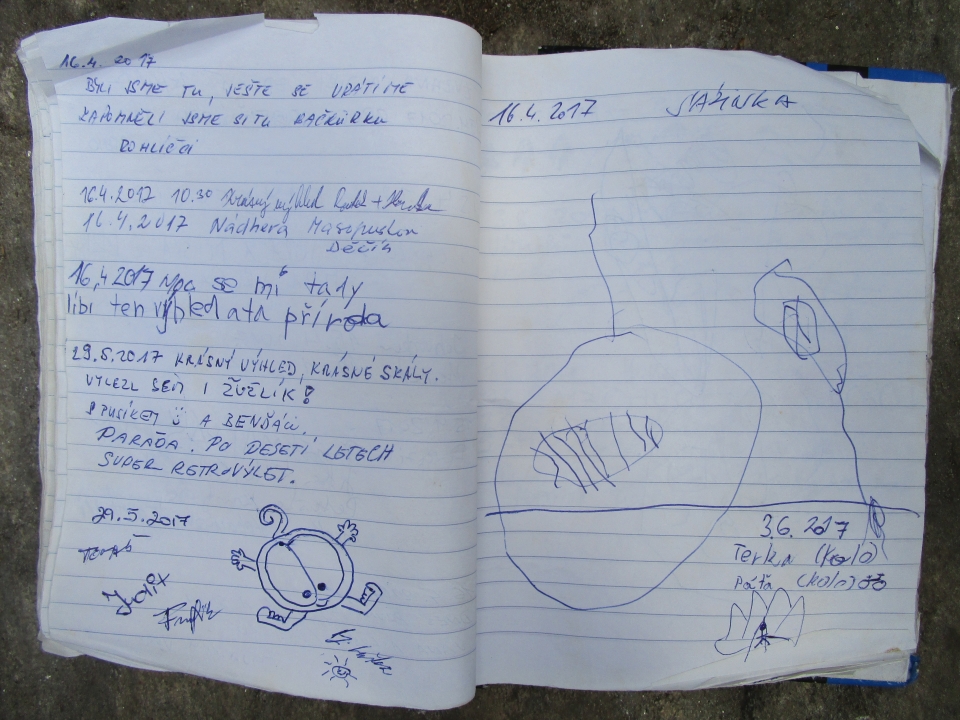 16.4. 2017
BYLI JSME TU, JEŠTĚ SE VRÁTÍME
ZAPOMNĚLI JSME SI TU BAČKŮRKU
ROHLÍČCI
16.4.2017 10.30 Krásný výhled
16.4.2017 Nádhera
Děčín
16,4 2017 Moc se mi tady
líbí ten výhled a ta příroda
29.5.2017 KRÁSNÝ VÝHLED, KRÁSNÉ SKÁLY.
VYLEZL SEM I ŽVEJLÍK!
S PUSÍKEM A BENĎÁU.
PARÁDA. PO DESETI LETECH
SUPER RETROVÝLET.
29.5.2017
16.4.2017
3.6. 2017
Terka
(kolo)